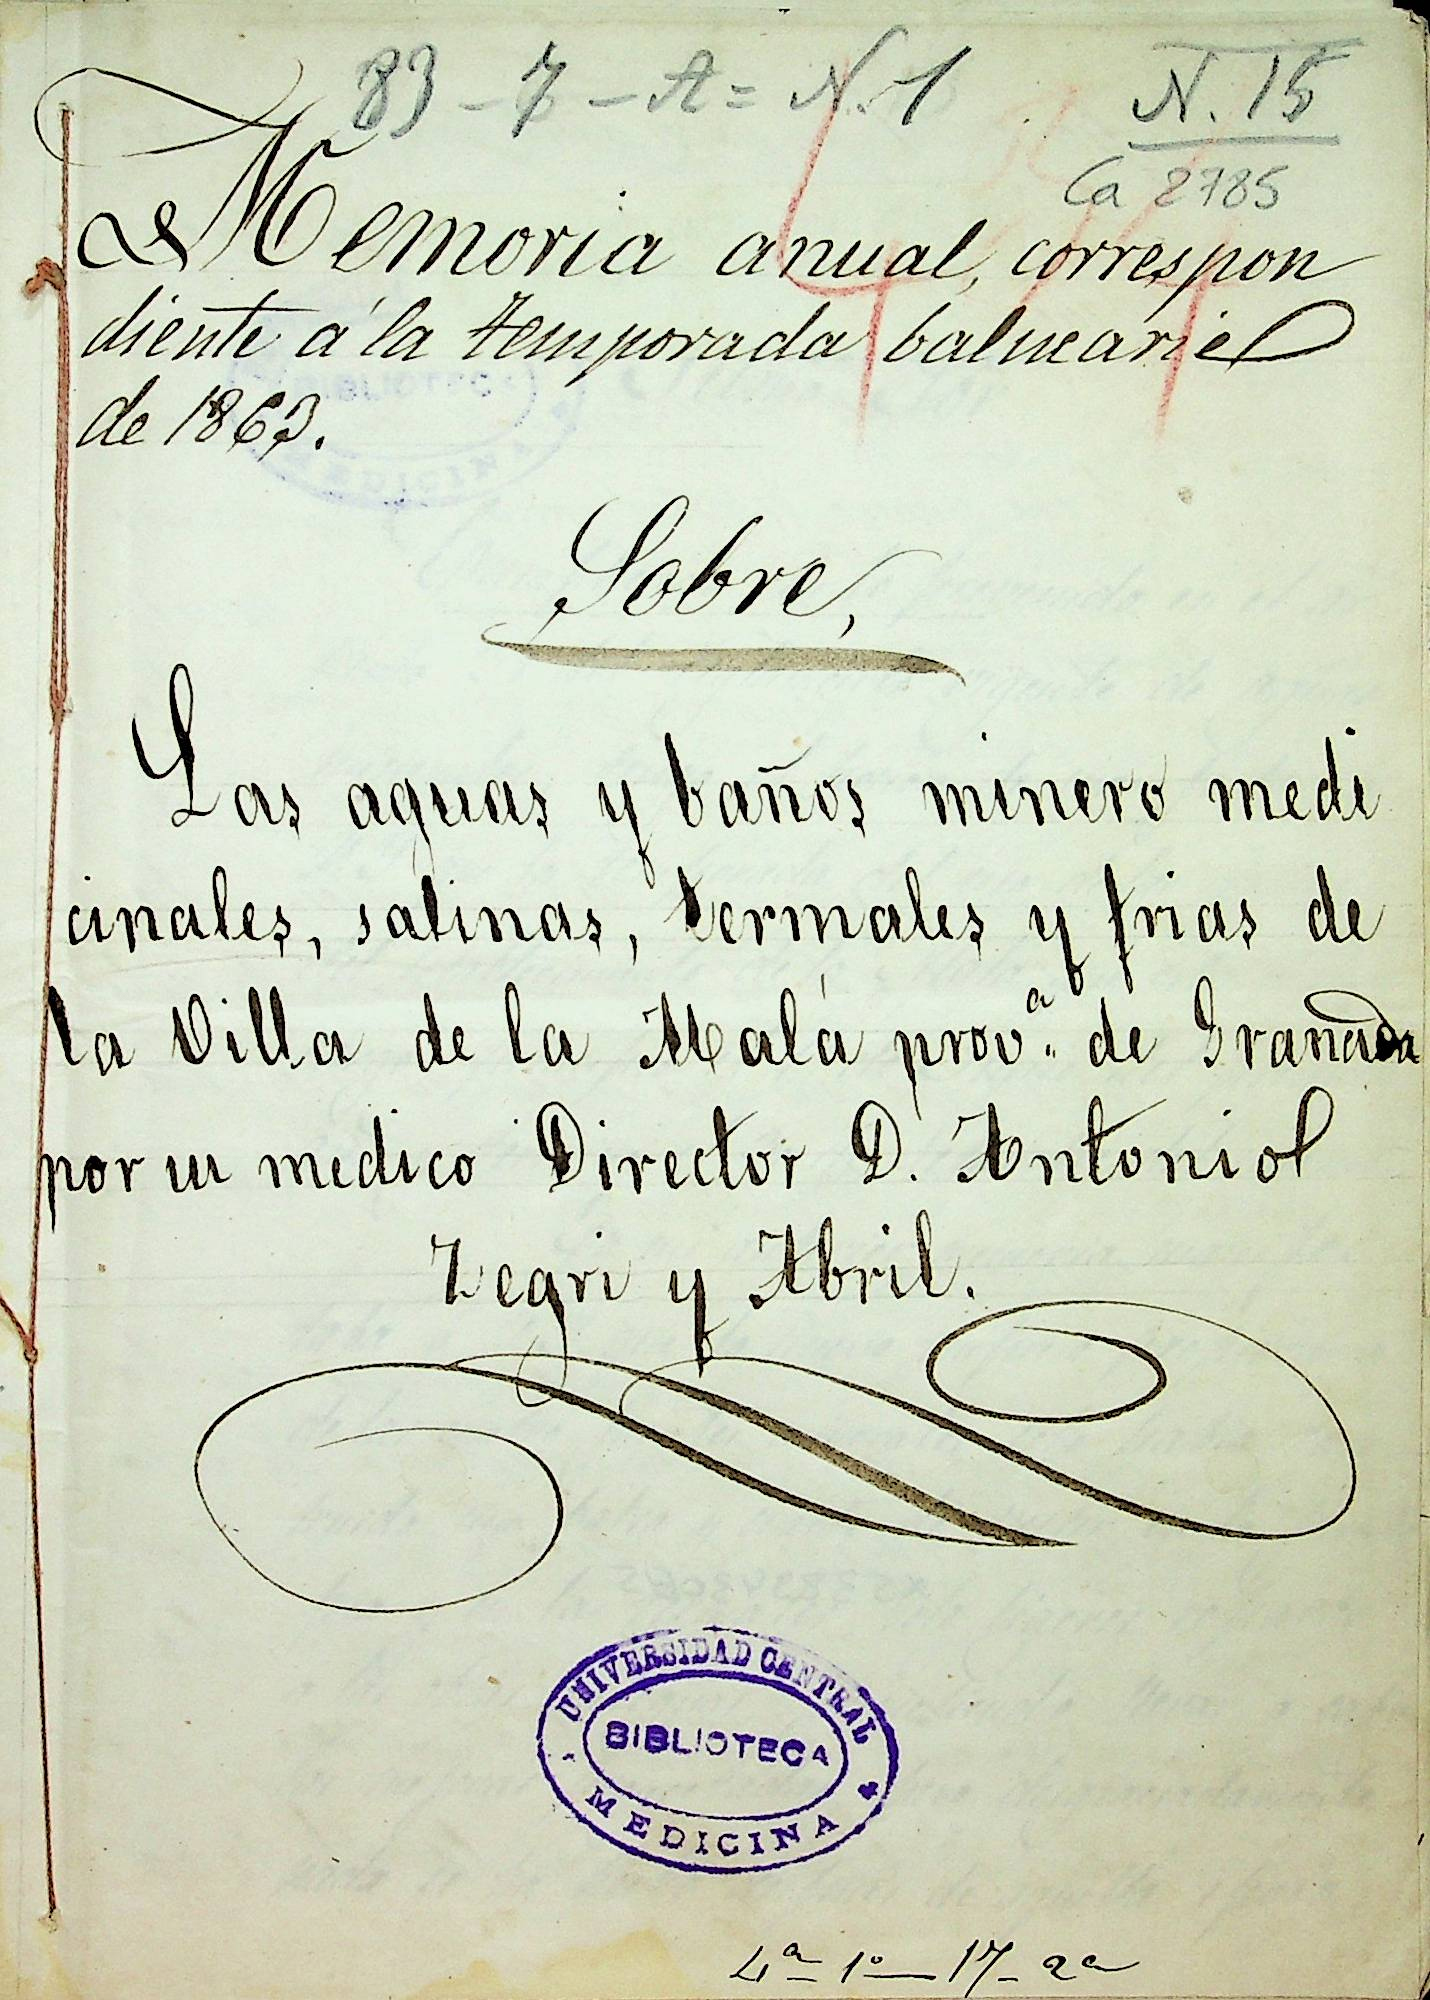 83 - 7 - A = N. 1
N. 15
Ca 2785
Memoria anual, correspon
diente á la temporada balneariel
de 1863.
Sobre,
Las aguas y baños minero medi
cinales, salinas, termales y frias de
la Villa de la Malá prov.ª de Granada
por su medico Director D. Antonio
Zegri y Abril.
UNIVERSIDAD CENTRAL
BIBLIOTECA
MEDICINA
4ª 1º 17 - 2ª